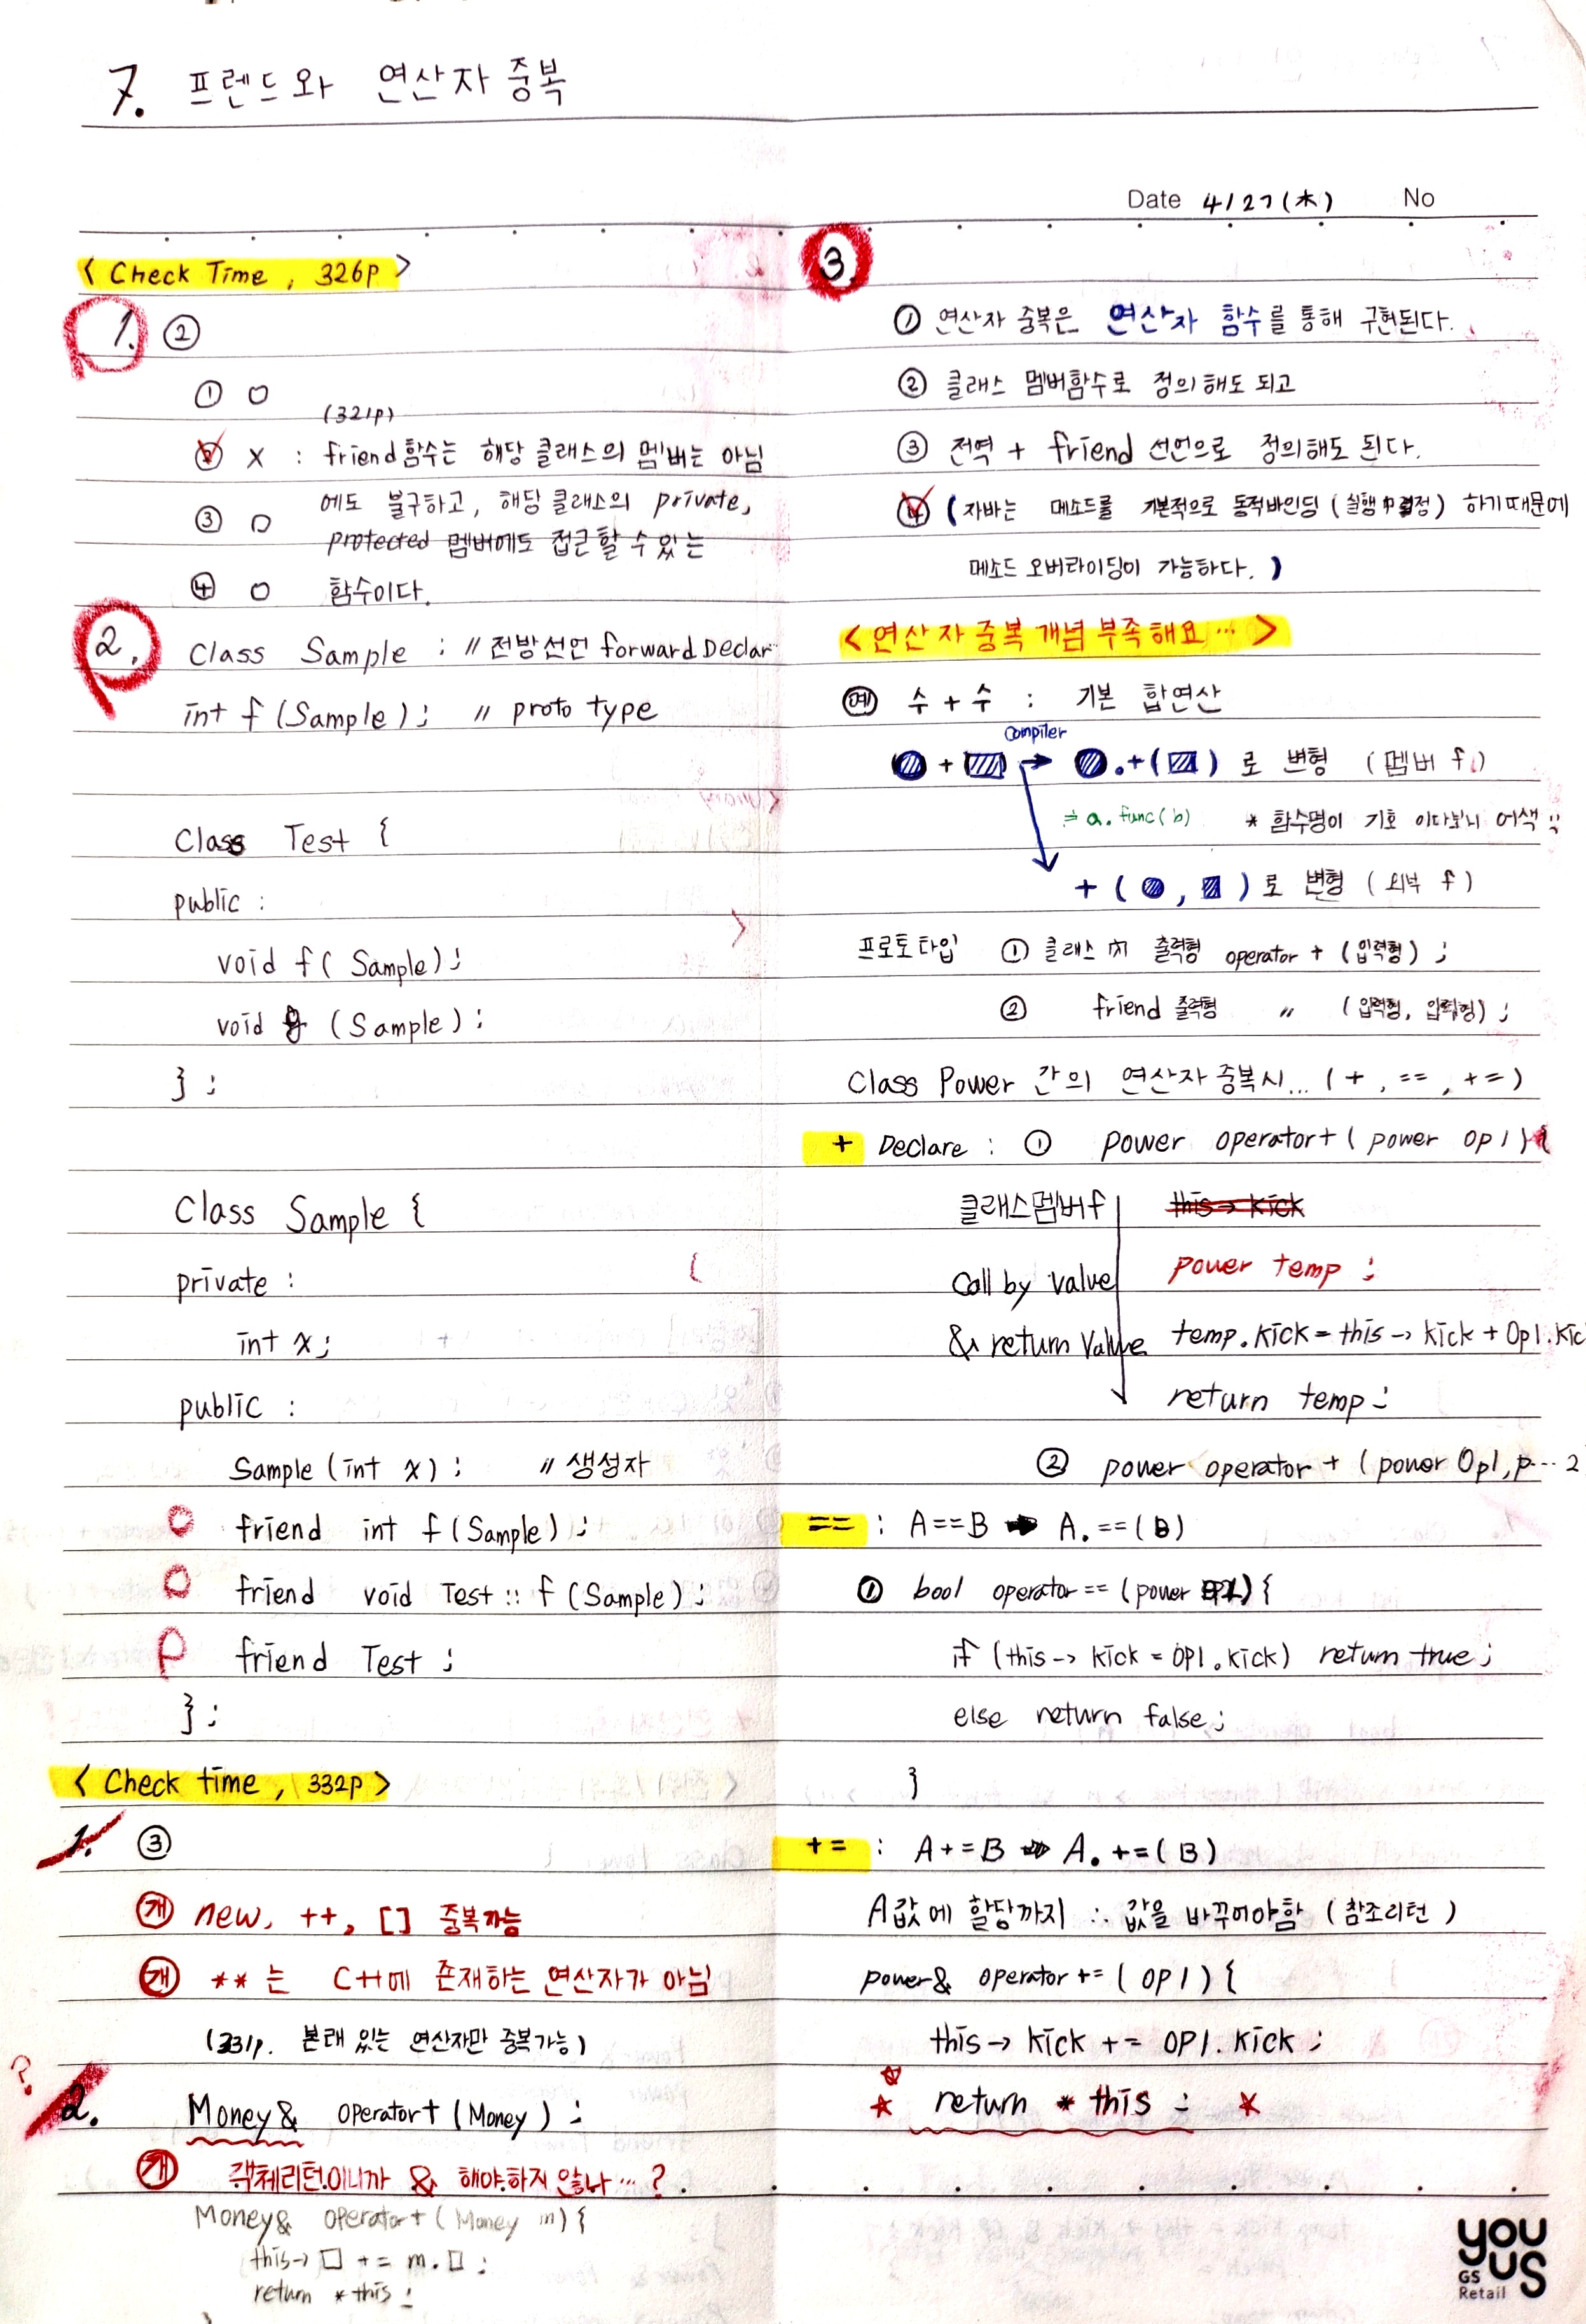 7. 프렌드와 연산자 중복
Date 4/27(木) No
< Check Time, 326p >
1. ②
① O
(321p)
② X : friend함수는 해당 클래스의 멤버는 아님
에도 불구하고, 해당 클래스의 private,
③ O
protected 멤버에도 접근할 수 있는
④ O 함수이다.
2. Class Sample ; // 전방선언 forward Declar
int f (Sample) ; // proto type
Class Test {
public :
void f( Sample) ;
void g (Sample) ;
} ;
Class Sample {
private :
int x ;
public :
Sample (int x) ; // 생성자
friend int f (Sample) ;
friend void Test :: f (Sample) ;
friend Test ;
} ;
< Check time, 332p >
1. ③
new, ++, [] 중복가능
** 는 C++에 존재하는 연산자가 아님
(331p. 본래 있는 연산자만 중복가능)
?
2. Money& operator+ (Money) ;
객체리턴이니까 & 해야하지 않나 … ?
Money& operator+ (Money m) {
this→□ += m.□ ;
return *this ;
3
① 연산자 중복은 연산자 함수를 통해 구현된다.
② 클래스 멤버함수로 정의해도 되고
③ 전역 + friend 선언으로 정의해도 된다.
④ (자바는 메소드를 기본적으로 동적바인딩 (실행中결정) 하기때문에
메소드 오버라이딩이 가능하다.)
< 연산자 중복 개념 부족해요 … >
예 수 + 수 : 기본 합연산
compiler
+ → .+( ) 로 변형 (멤버 f)
= a. func(b) * 함수명이 기호 이다보니 어색
+ ( , ) 로 변형 (외부 f)
프로토타입 ① 클래스 內 출력형 operator + (입력형) ;
② friend 출력형 〃 (입력형, 입력형) ;
Class Power 간의 연산자 중복시… ( + , == , += )
+ Declare : ① power operator+ ( power op1 ) {
클래스멤버f this→kick
Call by value power temp ;
& return Value temp.kick = this→kick + Op1.kic
return temp ;
② power operator + (power Op1, p… 2
== : A==B ➡ A. ==(B)
① bool operator == (power ) {
if (this→kick = OP1.kick) return true ;
else return false ;
}
+= : A+=B ➡ A. +=(B)
A값에 할당까지 ∴ 값을 바꾸어야함 (참조리턴)
power& operator += ( OP1 ) {
this→ kick += OP1. kick ;
☆ return * this ; ☆
you us
GS
Retail